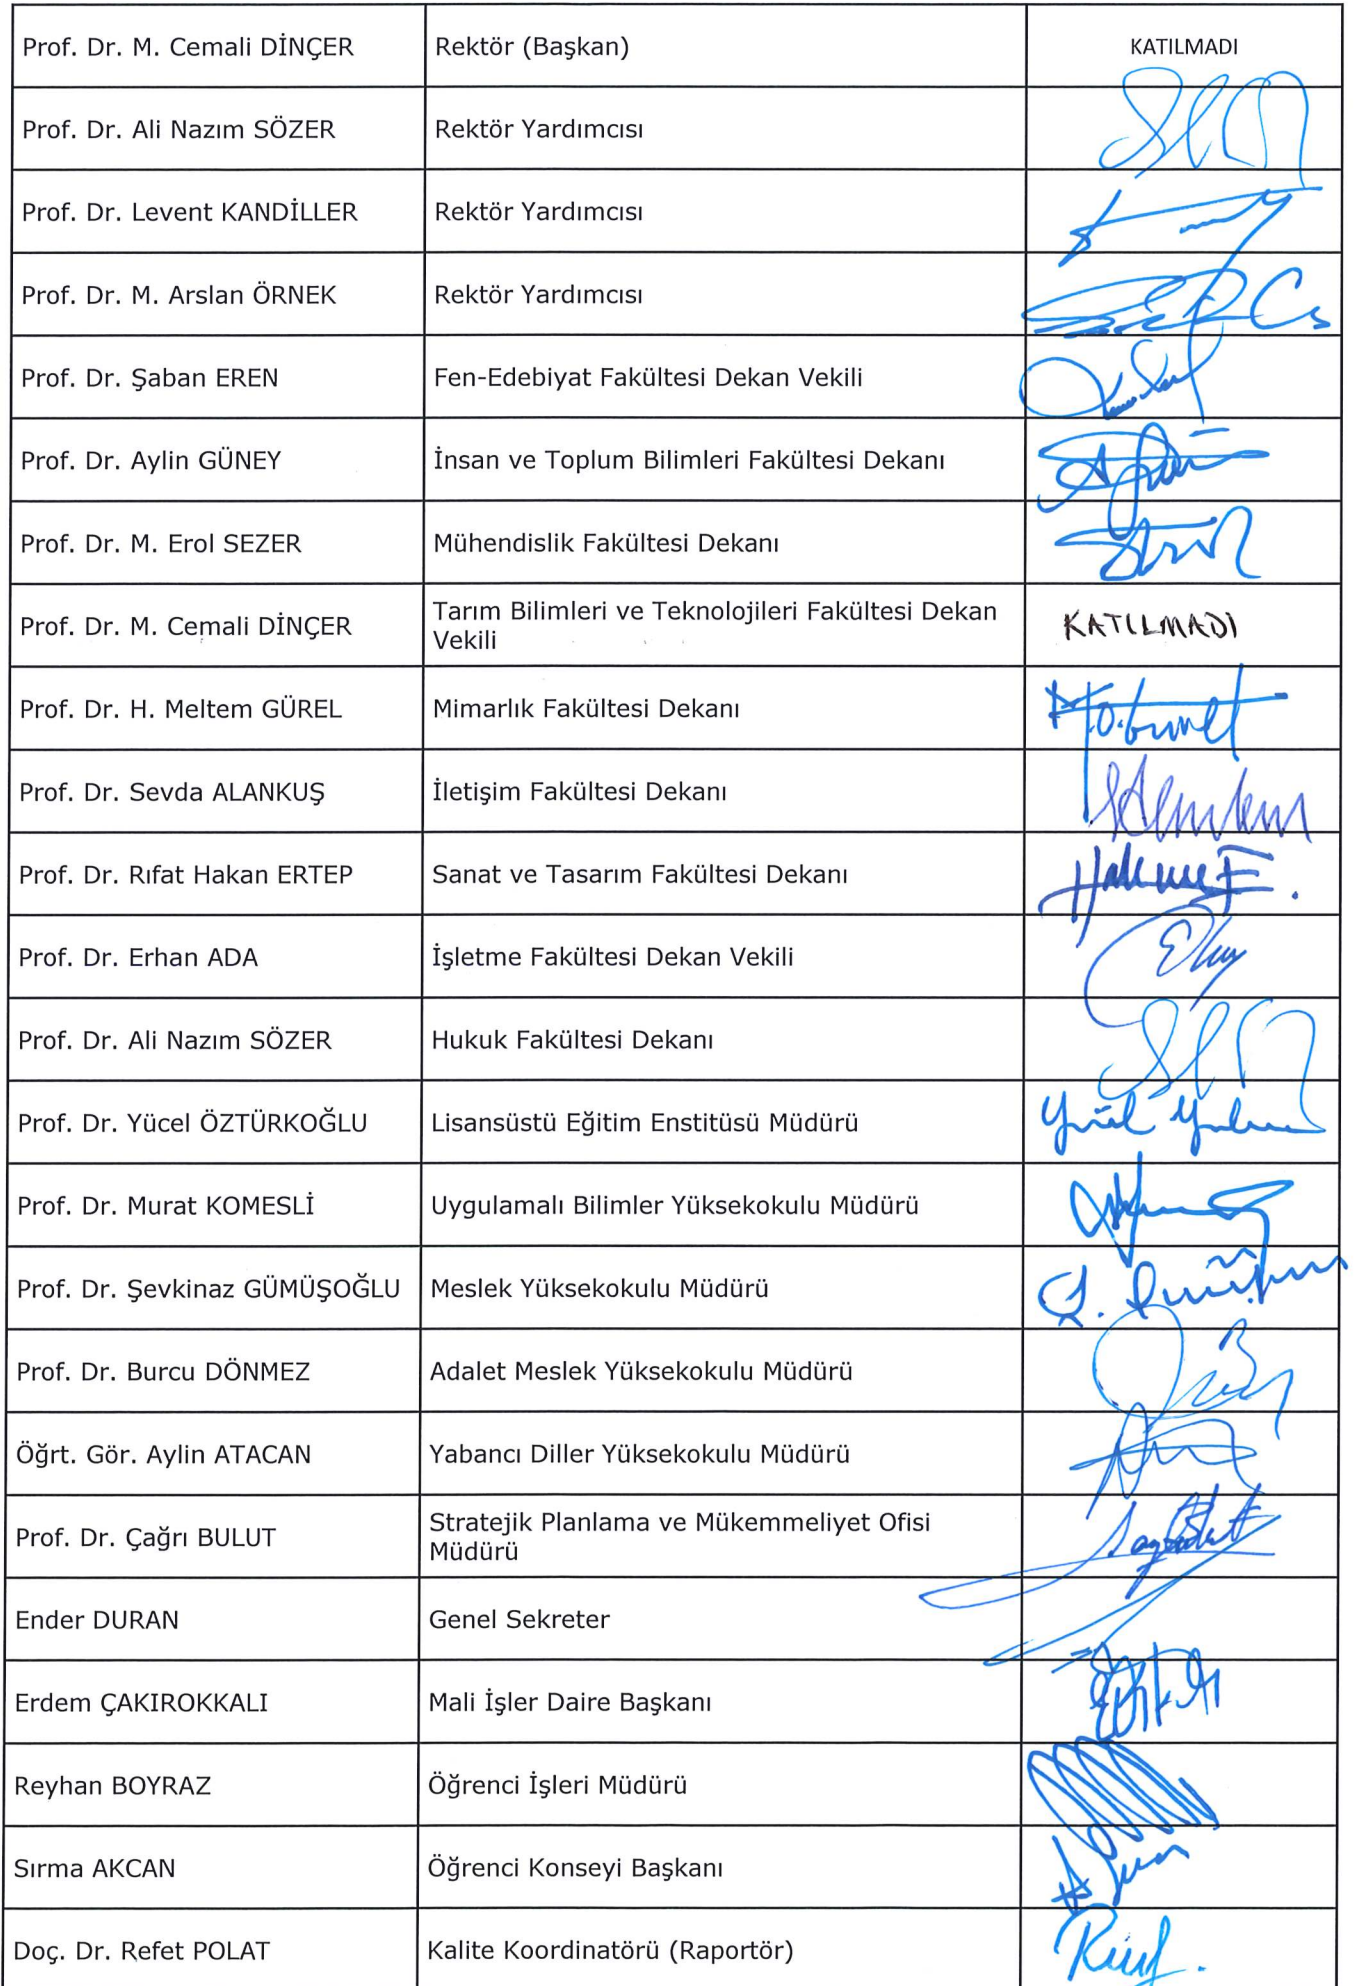 Prof. Dr. M. Cemali DİNÇER Rektör (Başkan) KATILMADI
Prof. Dr. Ali Nazım SÖZER Rektör Yardımcısı
Prof. Dr. Levent KANDİLLER Rektör Yardımcısı
Prof. Dr. M. Arslan ÖRNEK Rektör Yardımcısı
Prof. Dr. Şaban EREN Fen-Edebiyat Fakültesi Dekan Vekili
Prof. Dr. Aylin GÜNEY İnsan ve Toplum Bilimleri Fakültesi Dekanı
Prof. Dr. M. Erol SEZER Mühendislik Fakültesi Dekanı
Prof. Dr. M. Cemali DİNÇER Tarım Bilimleri ve Teknolojileri Fakültesi Dekan
Vekili KATILMADI
Prof. Dr. H. Meltem GÜREL Mimarlık Fakültesi Dekanı
Prof. Dr. Sevda ALANKUŞ İletişim Fakültesi Dekanı
Prof. Dr. Rıfat Hakan ERTEP Sanat ve Tasarım Fakültesi Dekanı
Prof. Dr. Erhan ADA İşletme Fakültesi Dekan Vekili
Prof. Dr. Ali Nazım SÖZER Hukuk Fakültesi Dekanı
Prof. Dr. Yücel ÖZTÜRKOĞLU Lisansüstü Eğitim Enstitüsü Müdürü
Prof. Dr. Murat KOMESLİ Uygulamalı Bilimler Yüksekokulu Müdürü
Prof. Dr. Şevkinaz GÜMÜŞOĞLU Meslek Yüksekokulu Müdürü
Prof. Dr. Burcu DÖNMEZ Adalet Meslek Yüksekokulu Müdürü
Öğrt. Gör. Aylin ATACAN Yabancı Diller Yüksekokulu Müdürü
Prof. Dr. Çağrı BULUT Stratejik Planlama ve Mükemmeliyet Ofisi
Müdürü
Ender DURAN Genel Sekreter
Erdem ÇAKIROKKALI Mali İşler Daire Başkanı
Reyhan BOYRAZ Öğrenci İşleri Müdürü
Sırma AKCAN Öğrenci Konseyi Başkanı
Doç. Dr. Refet POLAT Kalite Koordinatörü (Raportör)